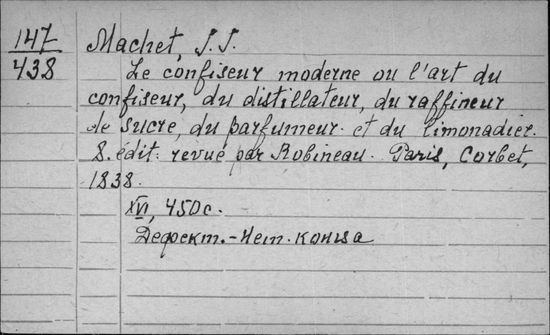 147
438
Machet, J.J.
Le confiseur moderne ou l'art du
confiseur, du distillateur, du raffineur
de sucre, du parfumeur et du limonadier.
8. édit. revué par Robineau. Paris, Corbet,
1838.
XVI, 450 с.
Дефект. - Нет конца